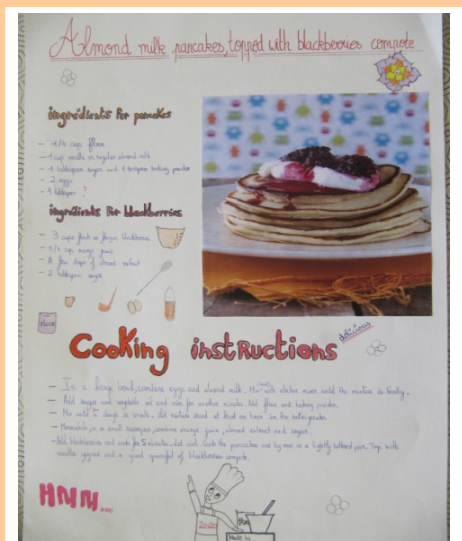 Almond milk pancakes, topped with blackberries compote
ingrédients for pancakes
- 1 1/4 cup flour
- 1 cup vanilla or regular almond milk
- 1 tablespoon sugar and 1 teaspoon baking powder
- 2 eggs
- 1 tablespoon
ingrédients for blackberries
- 3 cups fresh or frozen blackberries
- 1/4 cup orange juice
- A few drops of almond extract
- 2 tablespoon
delicious
Cooking instructions
- In a large bowl, combine eggs and almond milk. Mix with electric mixer until the mixture is frothy.
- Add sugar and vegetable oil and mix for another minute. Add flour and baking powder.
- Mix until is smooth. Let mixture stand at least an hour in the refrigerator.
- Meanwhile, in a small saucepan, combine orange juice, almond extract and sugar.
- Add blackberries and cook for 5 minutes. Let cool. Cook the pancakes one by one in a lightly buttered pan. Top with
vanilla yogurt and a good spoonful of blackberries compote.
HMM